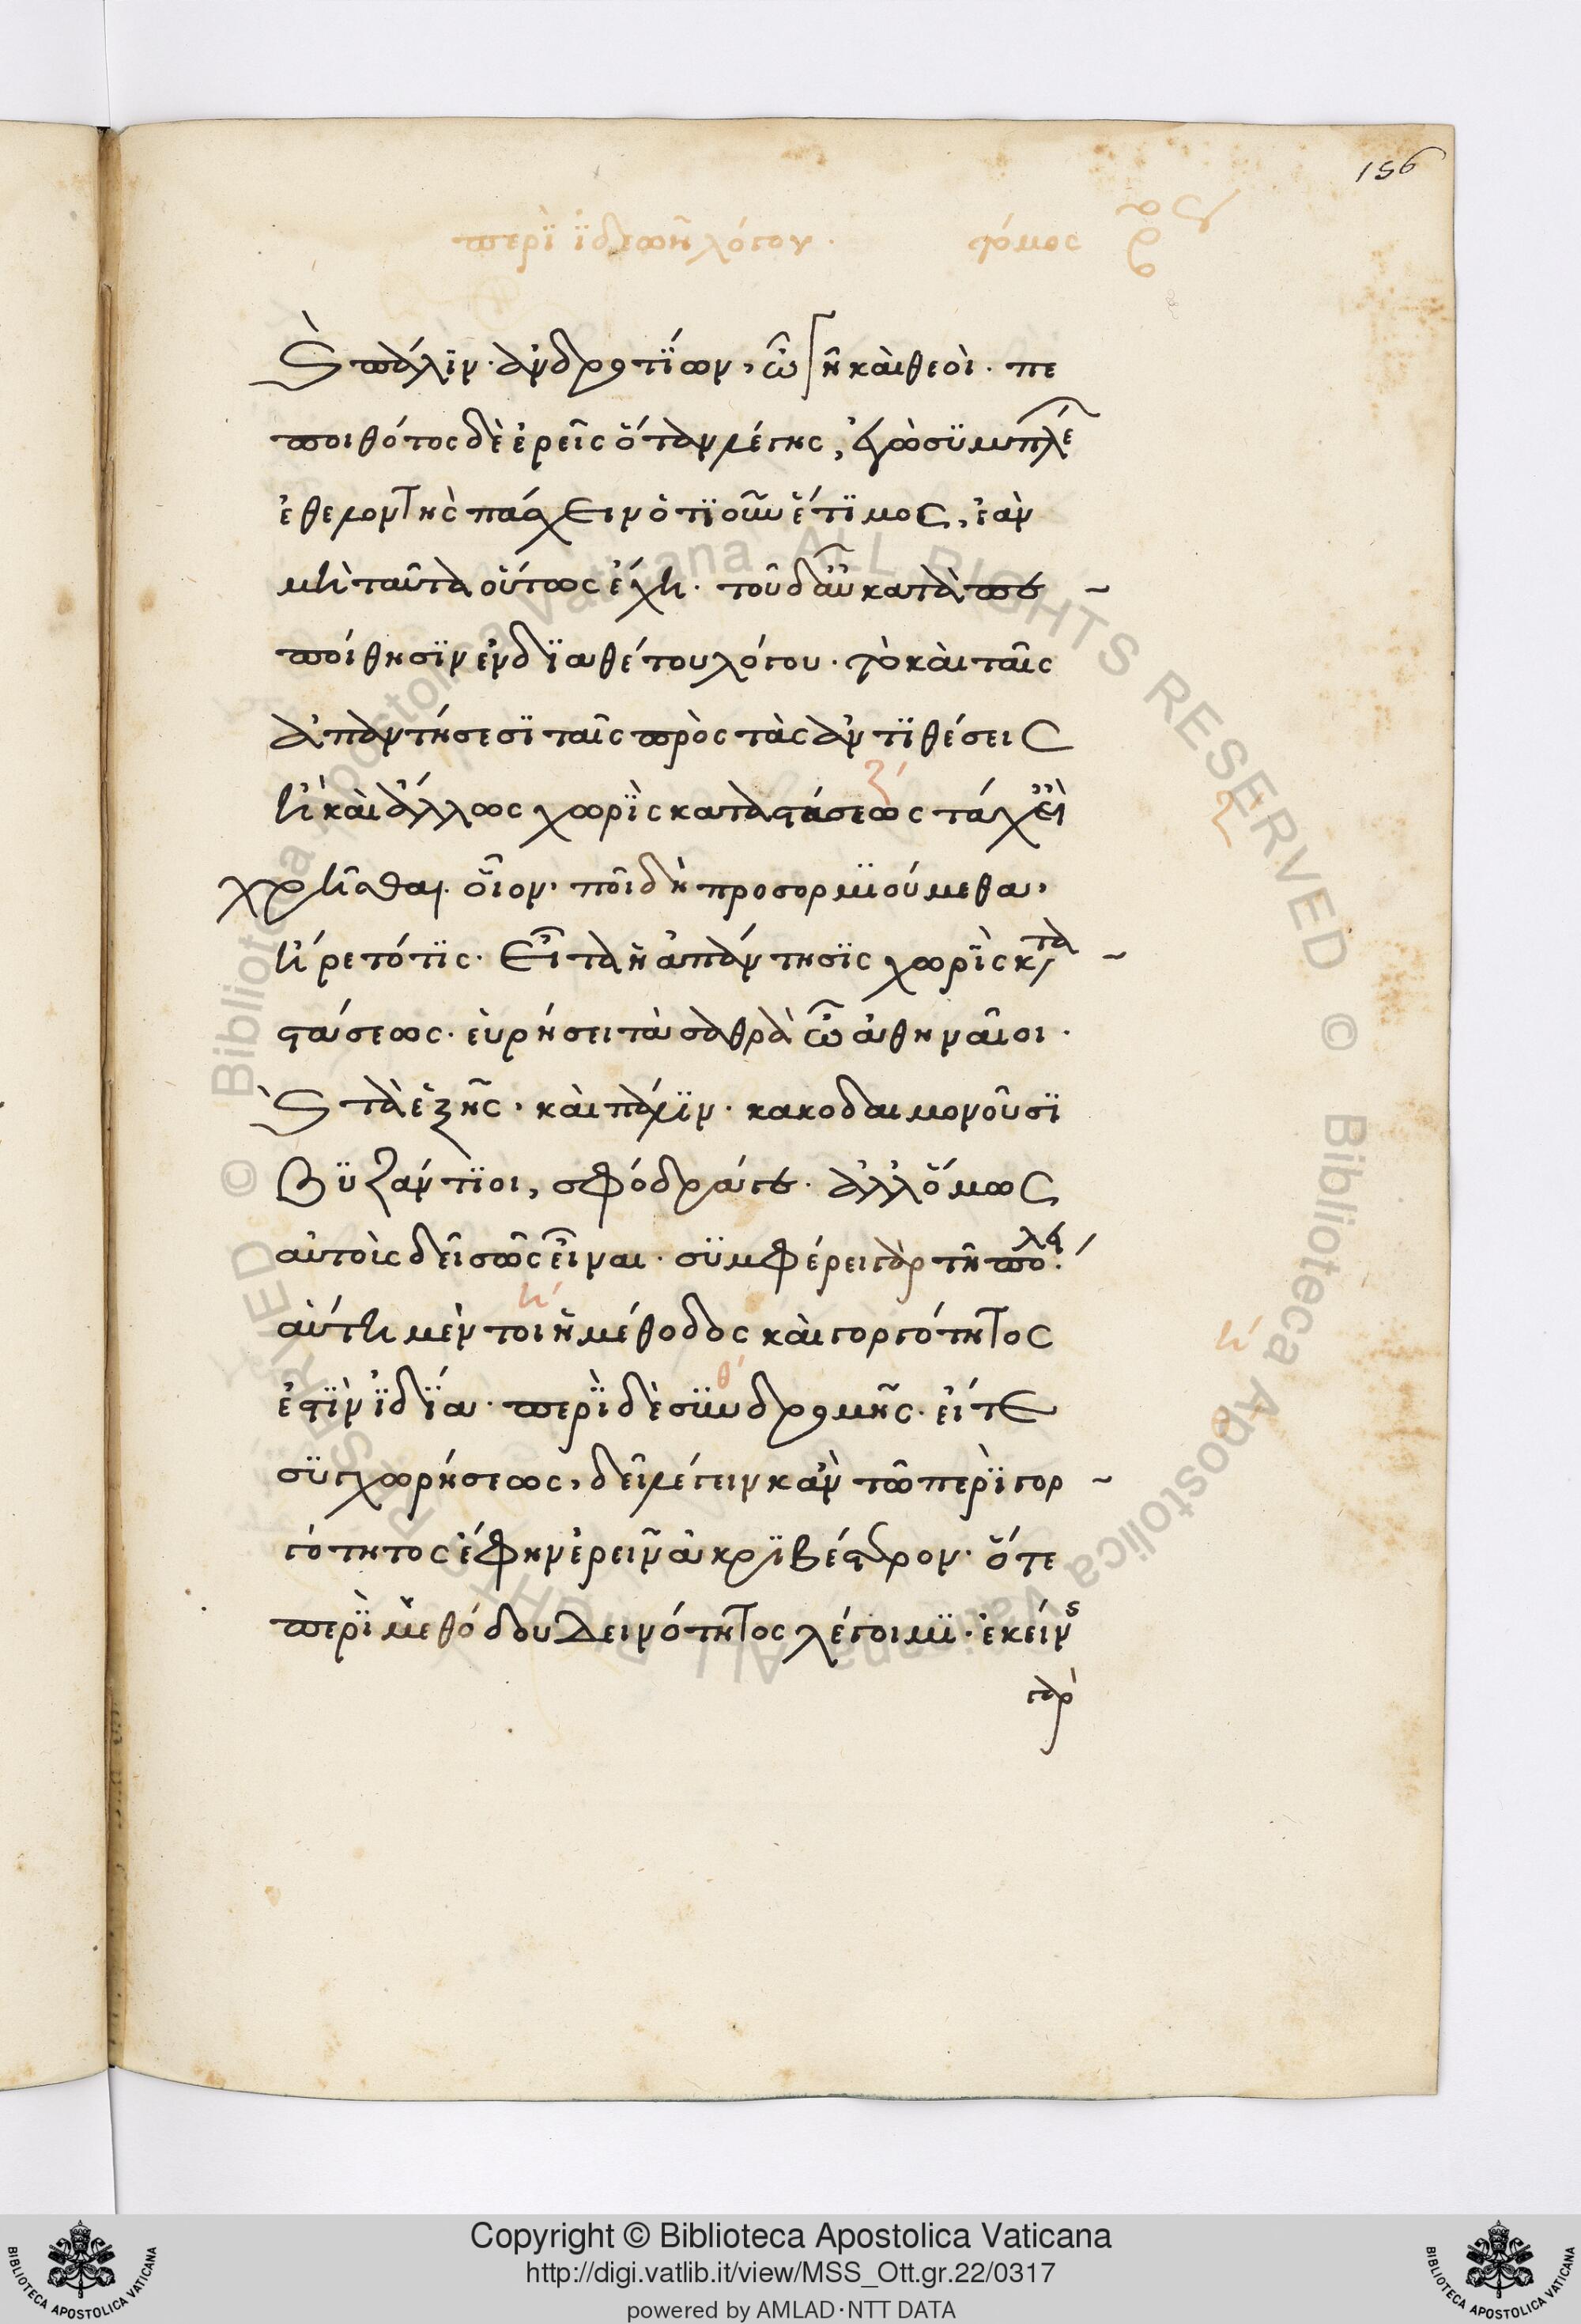 156
περὶ ἰδεῶν λόγου. τόμος
καὶ πάλιν. ἀνδροτίων, ὦ γῆ καὶ θεοί. πε
ποιθότος δὲ ἐρεῖς ὅταν λέγῃς, ἐγὼ συμπλέ
ἐθελοντὴς πάσχειν ὁτιοῦν ἕτοιμος, ἐὰν
μὴ ταῦτα οὕτως ἔχῃ. τοῦ δ' αὖ κατὰ πε
ποίθησιν ἐνδιαθέτου λόγου. τὸ καὶ ταῖς
ἀπαντήσεσι ταῖς πρὸς τὰς ἀντιθέσεις
ἢ καὶ ἄλλως χωρὶς καταστάσεως τάχει
χρῆσθαι. οἷον, ποῖ δὴ προσορμιούμεθα,
ἤρετό τις. εἶτα ἡ ἀπάντησις χωρὶς κατα
στάσεως. εὑρήσει τὰ σαθρὰ ὦ ἀθηναῖοι.
καὶ τὰ ἑξῆς. καὶ πάλιν. κακοδαιμονοῦσι
βυζάντιοι, σφόδρά γε. ἀλλ' ὅμως
αὐτοὺς δεῖ σῶς εἶναι. συμφέρει γὰρ τῇ πόλει
αὕτη μέντοι ἡ μέθοδος καὶ γοργότητος
ἐστὶν ἰδία. περὶ δὲ συνδρομῆς. εἴτε
συγχωρήσεως, δεῖ λέγειν κἀν τῶ περὶ γορ
γότητος ἔφην ἐρεῖν ἀκριβέστερον. ὅτε
περὶ μεθόδου δεινότητος λέγοιμι. ἐκείνης
γὰρ
ζ΄
ζ΄
η΄
η΄
θ΄
Copyright © Biblioteca Apostolica Vaticana
http://digi.vatlib.it/view/MSS_Ott.gr.22/0317
powered by AMLAD·NTT DATA
BIBLIOTECA APOSTOLICA VATICANA
BIBLIOTECA APOSTOLICA VATICANA
© Biblioteca Apostolica Vaticana ALL RIGHTS RESERVED © Biblioteca Apostolica Vaticana ALL RIGHTS RESERVED